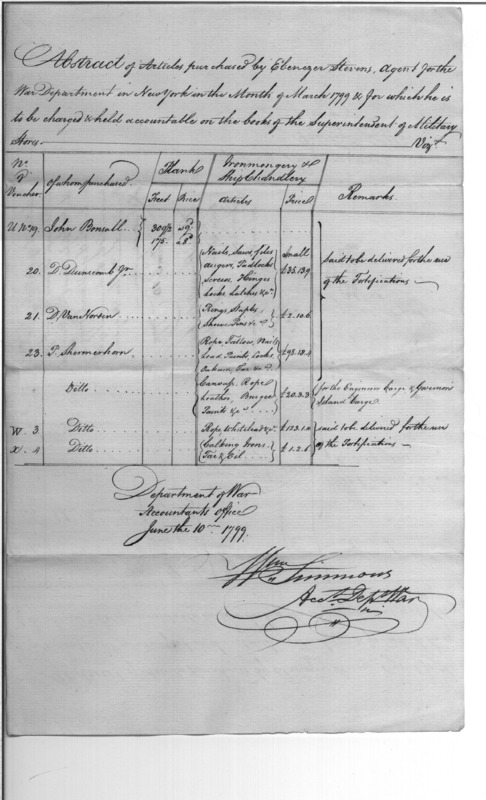 Abstract of Articles purchased by Ebenezer Stevens, Agent for the
War Department in New York in the Month of March 1799 & for which he is
to be charged & held accountable on the books of the Superintendent of Military
Stores. Vizt.
No. of Voucher Of whom purchased Plank Feet Price Ironmongery & Ship Chandlery Articles Price Remarks
U No. 19. John Bonsall 309½ 29d
175. 28d
20. D. Duncomb Jr. Nails, Saws, files Small
Augers, Padlocks £35.13.9 said to be delivered for the use
Screws, Hinges of the Fortifications
Locks Latches &c.
21. D. Van Norden Rings, Staples, £2.10.6
23. P. Shermerhorn Rope, Tallow, Nails
Lead Locks £98.18.4
Oakum, Tar &c.
Ditto Canvass, Rope
Leather £20.3.3 for the Engineers Barge & Governors
Paints &c. Island Barge
W 3 Ditto Rope, Whitelead &c. £123.1.0 said to be delivered for the use
X. 4 Ditto Calking Irons £1.2.6 of the Fortifications
Tar & Oil
Department of War
Accountants Office
June the 10th 1799.
Wm Simmons
Acct. Dept. War